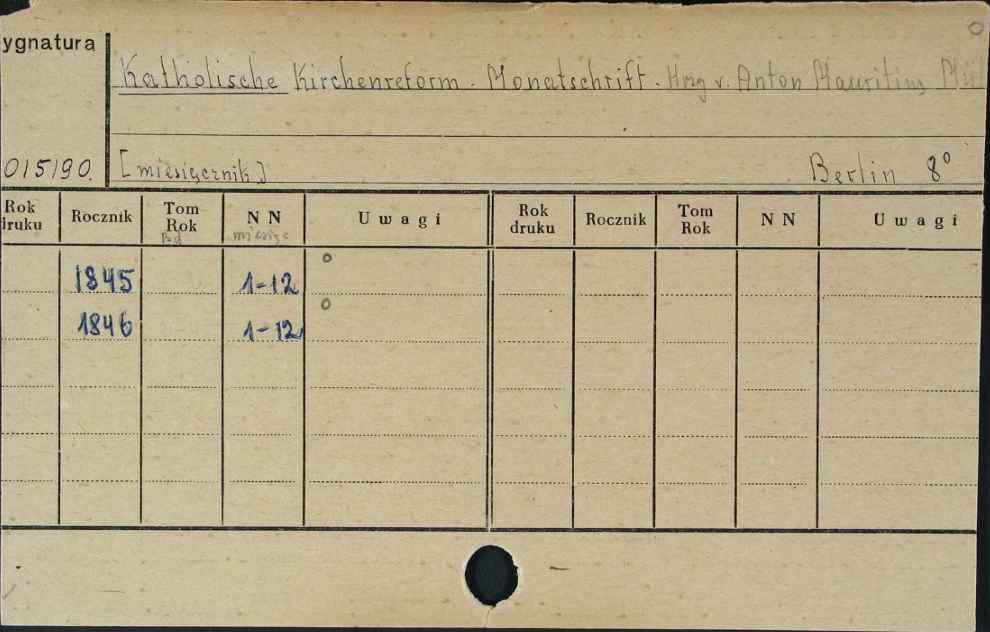 ygnatura
Katholische Kirchenreform. Monatschrift. Hrsg v. Anton Mauritius Mül
015190. [miesięcznik] Berlin 8°
Rok druku Rocznik Tom Rok Bd N N miesiąc Uwagi Rok druku Rocznik Tom Rok N N Uwagi
1845 1-12
1846 1-12